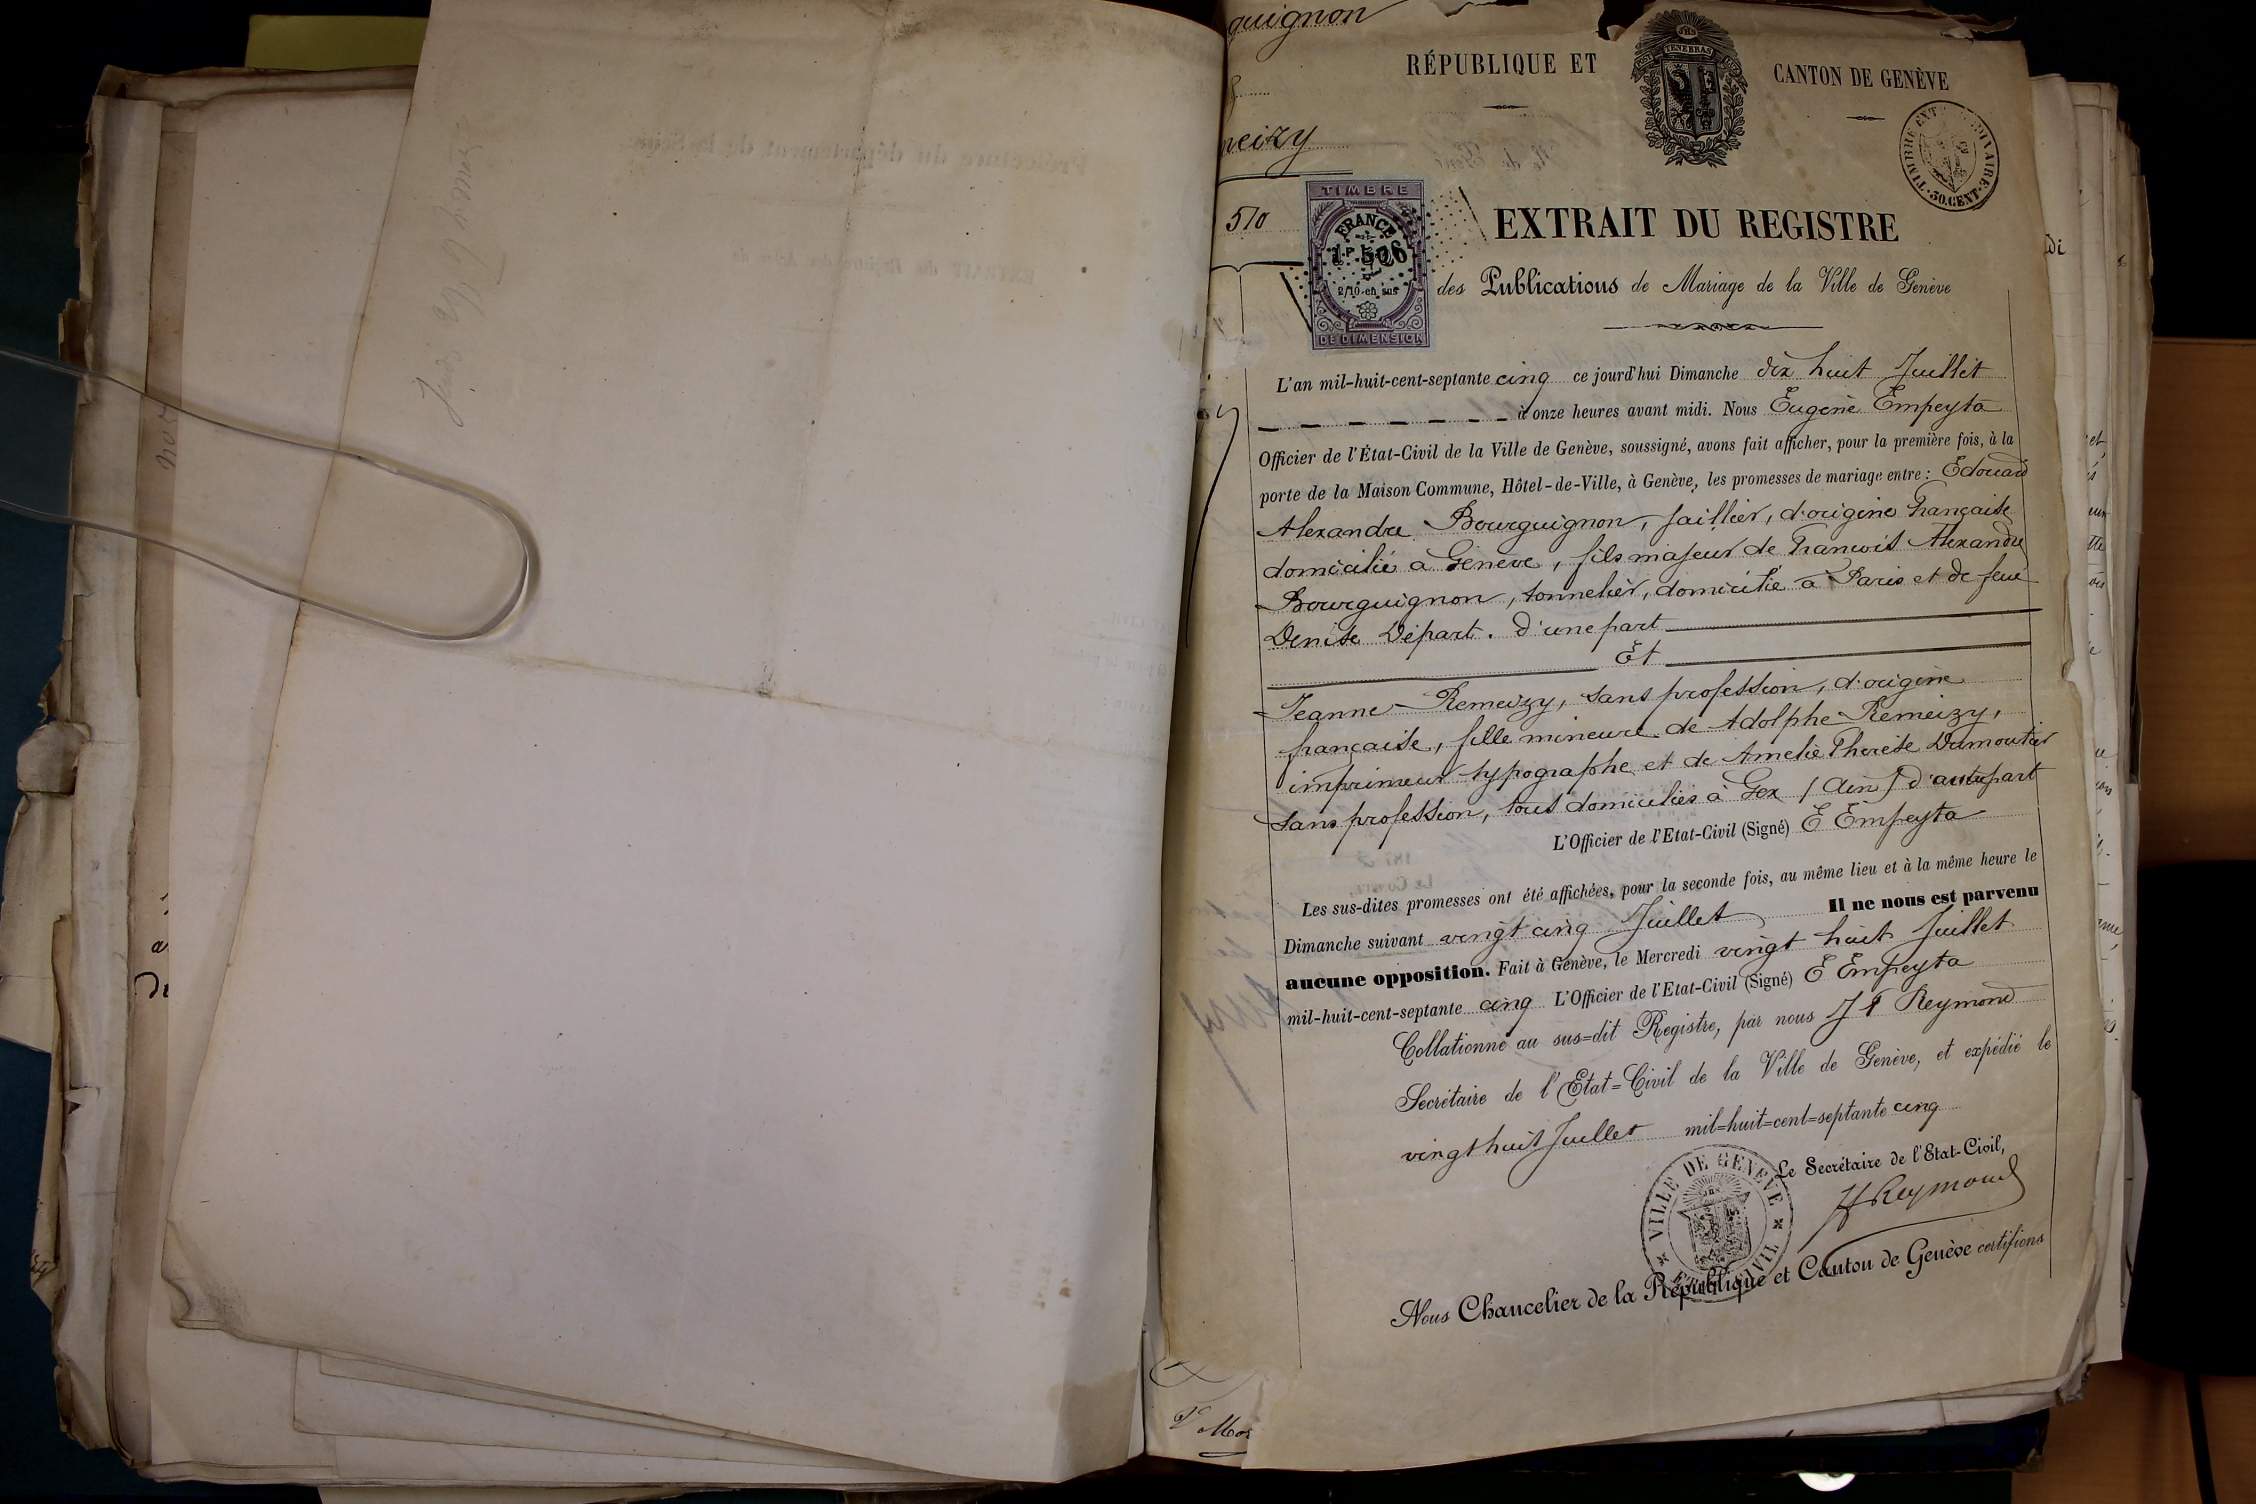 quignon
RÉPUBLIQUE ET
CANTON DE GENÈVE
TENEBRAS
neizy
TIMBRE
30.CENT.
510
TIMBRE
FRANCE
2/10 en sus
DE DIMENSION
EXTRAIT DU REGISTRE
des Publications de Mariage de la Ville de Genève
L'an mil-huit-cent-septante cinq ce jourd'hui Dimanche dix huit Juillet
à onze heures avant midi. Nous Eugène Empeyta
Officier de l'État-Civil de la Ville de Genève, soussigné, avons fait afficher, pour la première fois, à la
porte de la Maison Commune, Hôtel-de-Ville, à Genève, les promesses de mariage entre : Edouard
Alexandre Bourguignon, Joaillier, d'origine française
domicilié à Genève, fils majeur de François Alexandre
Bourguignon, tonnelier, domicilié à Paris et de feue
Denise Départ. d'une part
Et
Jeanne Remeizy, sans profession, d'origine
française, fille mineure de Adolphe Remeizy,
imprimeur typographe et de Amelie Therèse Dumoutier
sans profession, tous domiciliés à Gex (Ain) d'autre part
L'Officier de l'Etat-Civil (Signé) E Empeyta
Les sus-dites promesses ont été affichées, pour la seconde fois, au même lieu et à la même heure le
Dimanche suivant vingt cinq Juillet Il ne nous est parvenu
aucune opposition. Fait à Genève, le Mercredi vingt huit Juillet
mil-huit-cent-septante cinq L'Officier de l'Etat-Civil (Signé) E Empeyta
Collationné au sus=dit Registre, par nous J F Reymond
Secrétaire de l'Etat=Civil de la Ville de Genève, et expédié le
vingt huit Juillet mil=huit=cent=septante cinq
Le Secrétaire de l'Etat-Civil,
Reymond
VILLE DE GENÈVE
ETAT CIVIL
Nous Chancelier de la République et Canton de Genève certifions